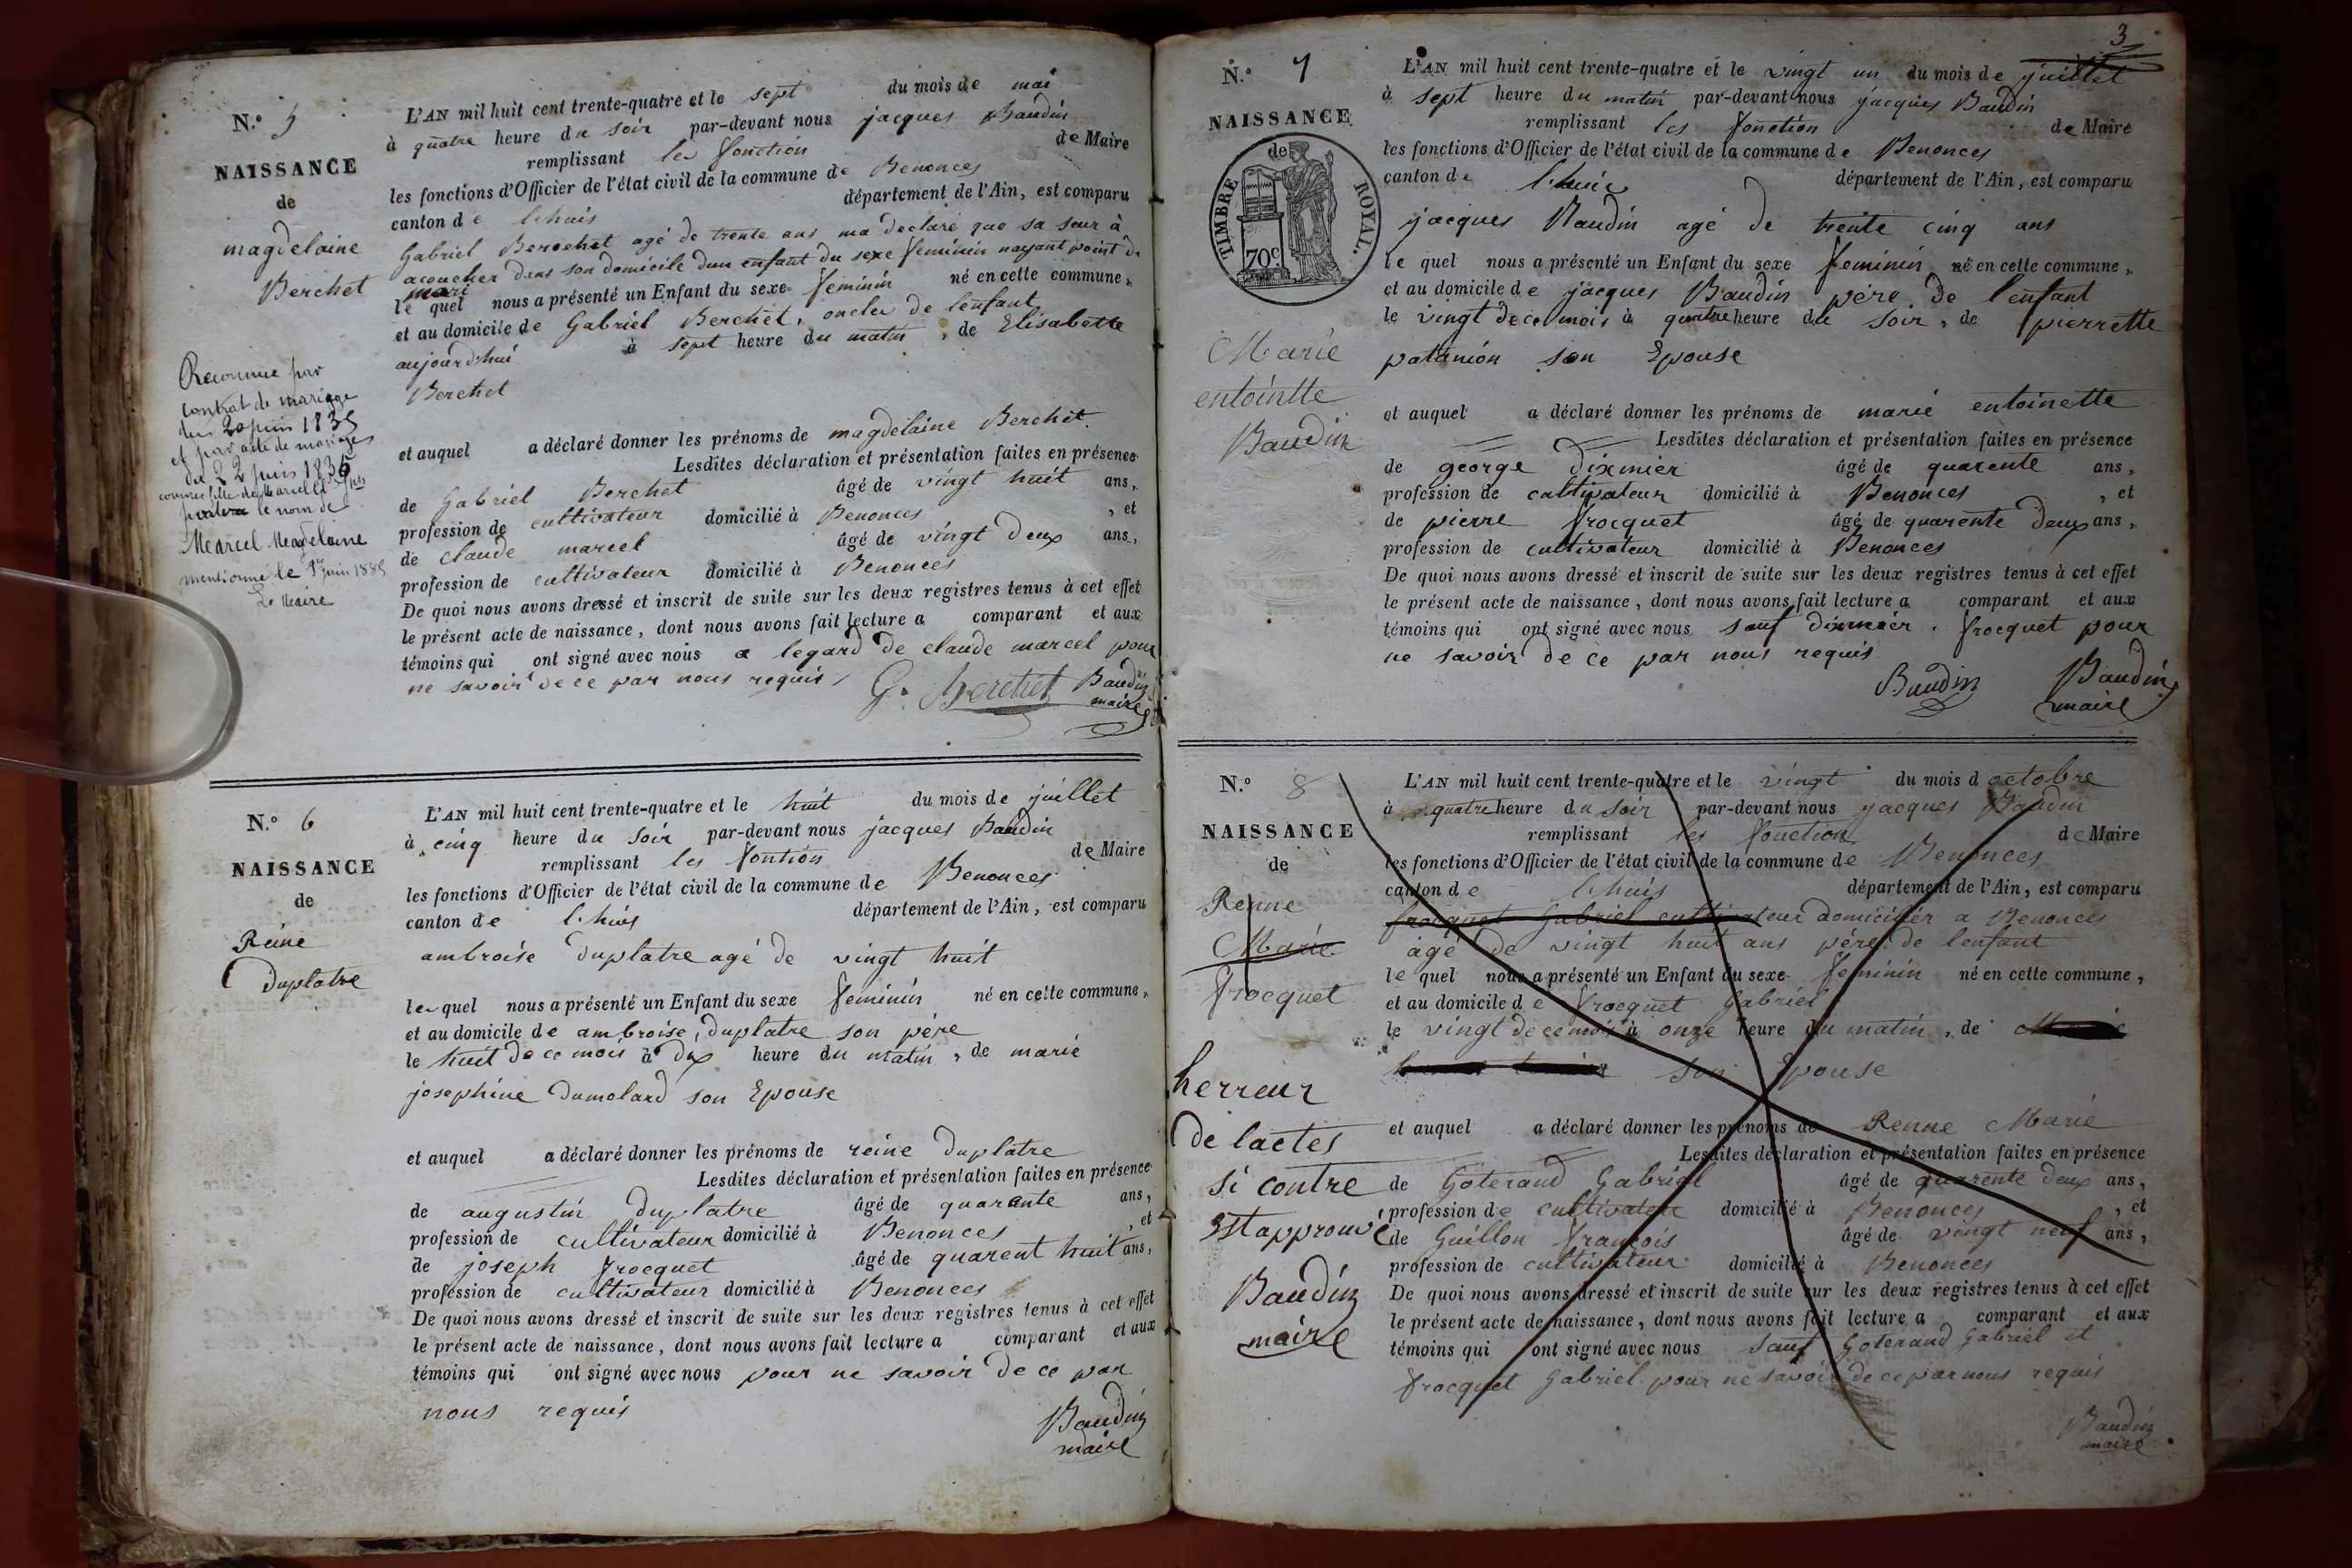 N.° 5
NAISSANCE
de
magdelaine
Berchet
Reconnue par
contrat de mariage
du 20 juin 1835
et par acte de mariage
du 22 juin 1835
comme fille de Marcel Cl
le nom de
Marcel Magdelaine
mentionné le 1er juin 1885
Le Maire
L'AN mil huit cent trente-quatre et le sept du mois de mai
à quatre heure du soir par-devant nous jacques Baudin
remplissant les fonction de Maire
les fonctions d'Officier de l'état civil de la commune de Benonces
canton de lhuis département de l'Ain, est comparu
Gabriel Berochet agé de trente ans ma declaré que sa seur à
acoucher dans son domicile dun enfant du sexe feminin nayant point de
mari
le quel nous a présenté un Enfant du sexe feminin né en cette commune,
et au domicile de Gabriel Berchet, oncler de lenfant
aujourdhui à sept heure du matin, de Elisabette
Berchet
et auquel a déclaré donner les prénoms de magdelaine Berchet
Lesdites déclaration et présentation faites en présence
de Gabriel Berchet âgé de vingt huit ans,
profession de cultivateur domicilié à Benonces, et
de claude marcel âgé de vingt deux ans,
profession de cultivateur domicilié à Benonces
De quoi nous avons dressé et inscrit de suite sur les deux registres tenus à cet effet
le présent acte de naissance, dont nous avons fait lecture a comparant et aux
témoins qui ont signé avec nous a legard de claude marcel pour
ne savoir de ce par nous requis
G. Berchet Baudin
maire
N.° 6
NAISSANCE
de
Reine
Duplatre
L'AN mil huit cent trente-quatre et le huit du mois de juillet
à cinq heure du soir par-devant nous jacques Baudin
remplissant les fontion de Maire
les fonctions d'Officier de l'état civil de la commune de Benonces
canton de lhuis département de l'Ain, est comparu
ambroise duplatre agé de vingt huit
le quel nous a présenté un Enfant du sexe feminin né en cette commune,
et au domicile de ambroise, duplatre son pére
le huit de ce mois à dix heure du matin, de marie
josephine dumolard son Epouse
et auquel a déclaré donner les prénoms de reine duplatre
Lesdites déclaration et présentation faites en présence
de augustin duplatre âgé de quarante ans,
profession de cultivateur domicilié à Benonces, et
de joseph frocquet âgé de quarent huit ans,
profession de cultivateur domicilié à Benonces
De quoi nous avons dressé et inscrit de suite sur les deux registres tenus à cet effet
le présent acte de naissance, dont nous avons fait lecture a comparant et aux
témoins qui ont signé avec nous pour ne savoir de ce par
nous requis
Baudin
maire
3
N.° 7
NAISSANCE
de
TIMBRE ROYAL.
70c
Marie
entointte
Baudin
L'AN mil huit cent trente-quatre et le vingt un du mois de juillet
à sept heure du matin par-devant nous jacques Baudin
remplissant les fonction de Maire
les fonctions d'Officier de l'état civil de la commune de Benonces
canton de lhuis département de l'Ain, est comparu
jacques Baudin agé de trente cinq ans
le quel nous a présenté un Enfant du sexe feminin né en cette commune,
et au domicile de jacques Baudin pére de lenfant
le vingt de ce mois à quatre heure du soir, de pierrette
patinion son Epouse
et auquel a déclaré donner les prénoms de marie entoinette
Lesdites déclaration et présentation faites en présence
de george dixmier âgé de quarente ans,
profession de cultivateur domicilié à Benonces, et
de pierre frocquet âgé de quarente deux ans,
profession de cultivateur domicilié à Benonces
De quoi nous avons dressé et inscrit de suite sur les deux registres tenus à cet effet
le présent acte de naissance, dont nous avons fait lecture a comparant et aux
témoins qui ont signé avec nous sauf dixmier. frocquet pour
ne savoir de ce par nous requis
Baudin Baudin
maire
N.° 8
NAISSANCE
de
Renne
Marie
frocquet
herreur
de lactes
si contre
est approuvé
Baudin
maire
L'AN mil huit cent trente-quatre et le vingt du mois d octobre
à quatre heure du soir par-devant nous jacques Baudin
remplissant les fonction de Maire
les fonctions d'Officier de l'état civil de la commune de Benonces
canton de lhuis département de l'Ain, est comparu
frocquet Gabriel cultivateur domicilier a Benonces
agé de vingt huit ans pére de lenfant
le quel nous a présenté un Enfant du sexe feminin né en cette commune,
et au domicile de frocquet Gabriel
le vingt de ce mois à onze heure du matin, de
son Epouse
et auquel a déclaré donner les prénoms de Renne Marie
Lesdites déclaration et présentation faites en présence
de Goterand Gabriel âgé de quarente deux ans,
profession de cultivateur domicilié à Benonces, et
de Guillon françois âgé de vingt neuf ans,
profession de cultivateur domicilié à Benonces
De quoi nous avons dressé et inscrit de suite sur les deux registres tenus à cet effet
le présent acte de naissance, dont nous avons fait lecture a comparant et aux
témoins qui ont signé avec nous sauf Goterand Gabriel et
frocquet Gabriel pour ne savoir de ce par nous requis
Baudin
maire